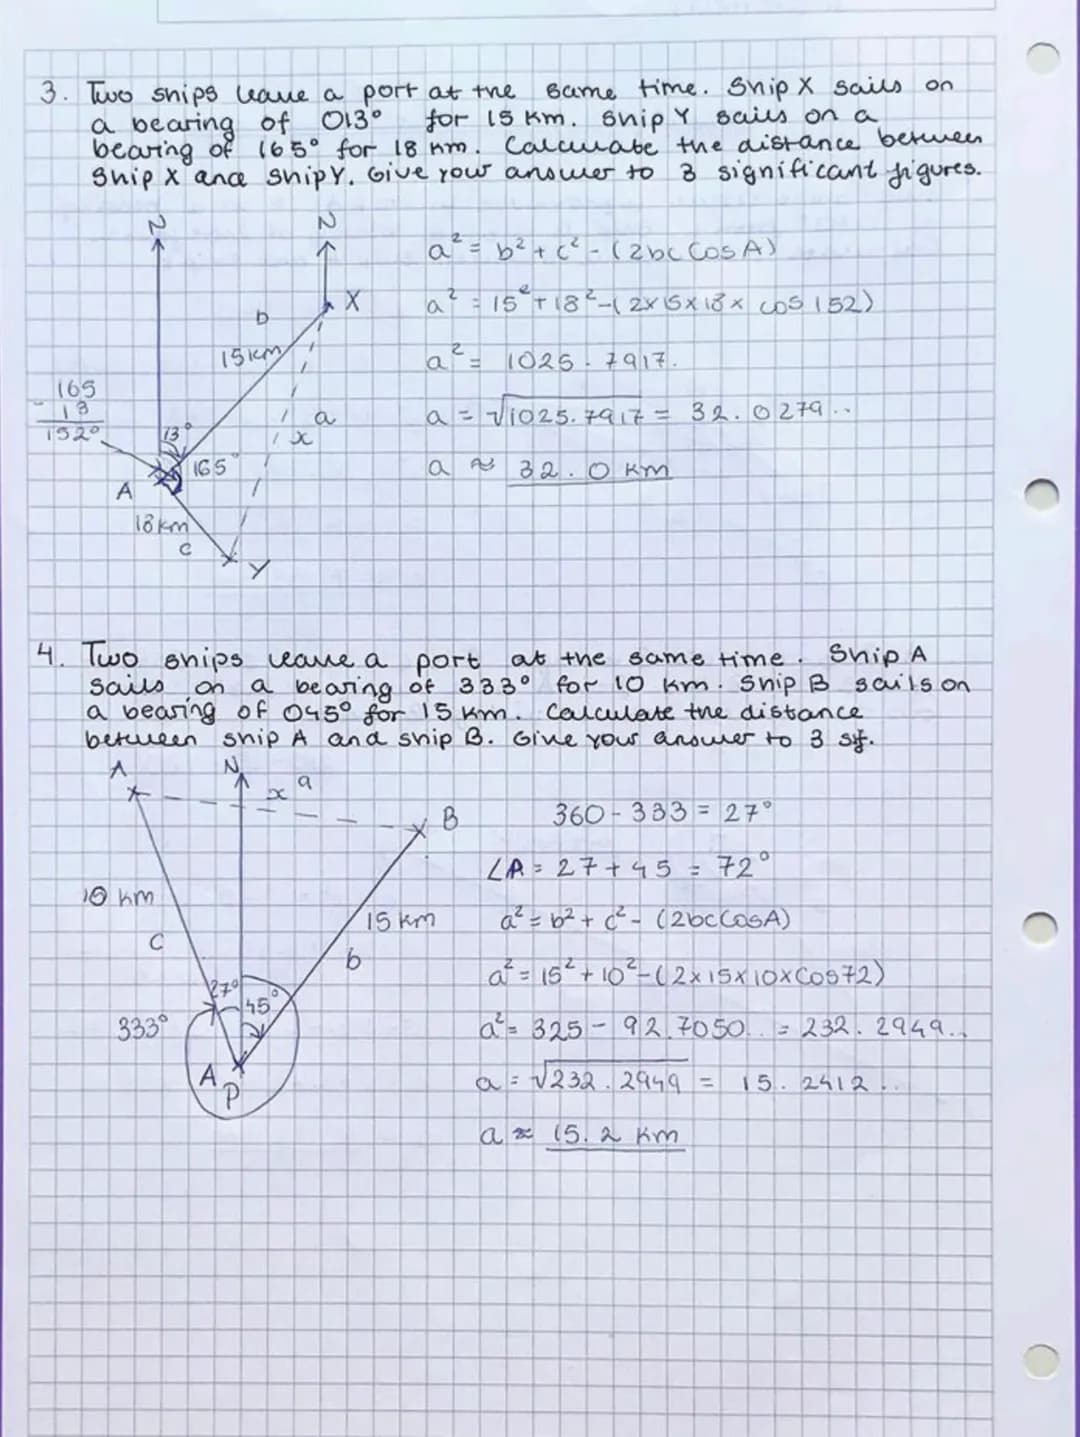 3. Two ships leave a port at the same time. Ship X sails on
a bearing of 013° for 15 km. Ship Y sails on a
bearing of 165° for 18 km. Calculate the distance between
Ship X and Ship Y. Give your answer to 3 significant figures.
N
N
X
b
15 km
165
- 13
152°
13°
165°
a
x
A
18 km
c
Y
a² = b² + c² - (2bc Cos A)
a² = 15² + 18² - (2×15×18× cos 152)
a² = 1025.7917.
a = √1025.7917 = 32.0279..
a ≈ 32.0 km
4. Two ships leave a port at the same time. Ship A
sails on a bearing of 333° for 10 km. Ship B sails on
a bearing of 045° for 15 km. Calculate the distance
between ship A and ship B. Give your answer to 3 sf.
A
N
x a
B
10 km
c
15 km
b
27°
45°
333°
A
P
360 - 333 = 27°
∠A = 27 + 45 = 72°
a² = b² + c² - (2bcCosA)
a² = 15² + 10² - (2×15×10×Cos72)
a² = 325 - 92.7050.. = 232.2949..
a = √232.2949 = 15.2412..
a ≈ 15.2 km